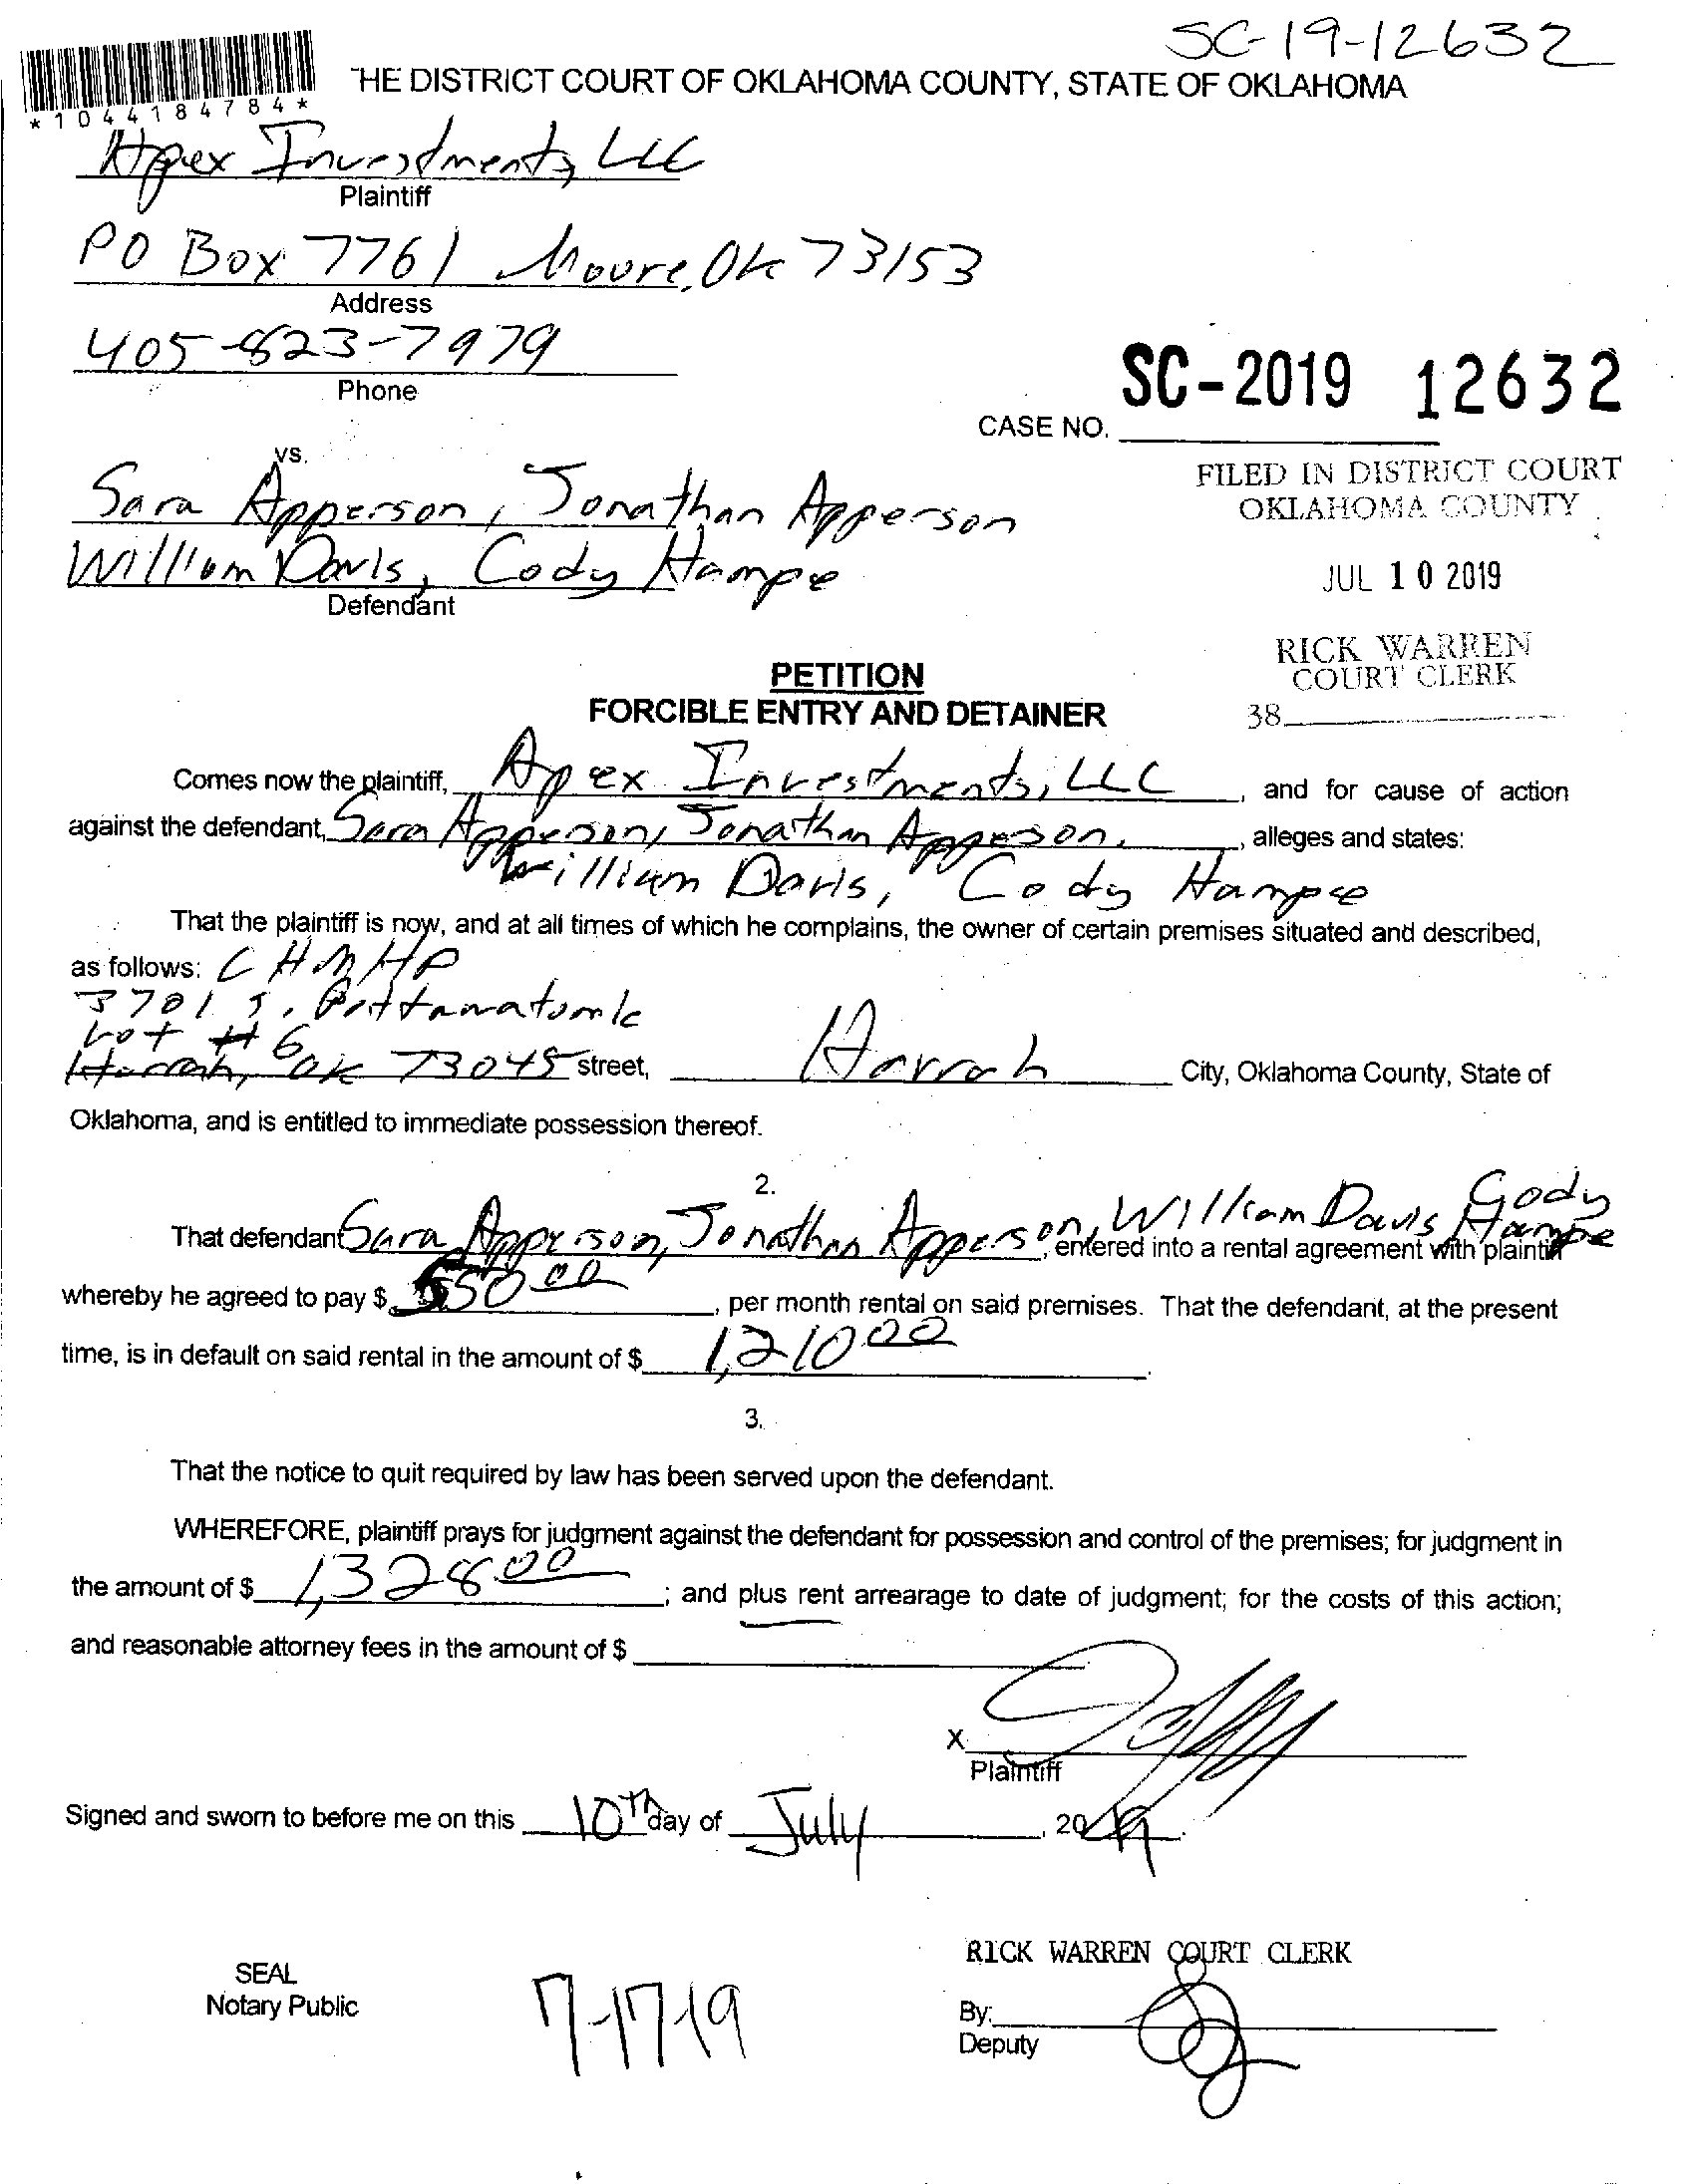 SC-19-12632
THE DISTRICT COURT OF OKLAHOMA COUNTY, STATE OF OKLAHOMA
*1044184784*
Apex Investments, LLC
Plaintiff
PO Box 7761 Moore, Ok 73153
Address
405-823-7979
Phone
SC-2019 12632
CASE NO.
vs.
Sara Apperson, Jonathan Apperson
William Davis, Cody Hampe
Defendant
FILED IN DISTRICT COURT
OKLAHOMA COUNTY
JUL 10 2019
RICK WARREN
COURT CLERK
38
PETITION
FORCIBLE ENTRY AND DETAINER
Comes now the plaintiff, Apex Investments, LLC, and for cause of action
against the defendant, Sara Apperson, Jonathan Apperson, , alleges and states:
William Davis, Cody Hampe
That the plaintiff is now, and at all times of which he complains, the owner of certain premises situated and described,
as follows: CHMHP
3701 S. Pottawatomie
Lot #6
Harrah, OK 73045 street, Harrah City, Oklahoma County, State of
Oklahoma, and is entitled to immediate possession thereof.
2.
That defendant Sara Apperson, Jonathan Apperson, William Davis Cody Hampe, entered into a rental agreement with plaintiff
whereby he agreed to pay $ 550.00, per month rental on said premises. That the defendant, at the present
time, is in default on said rental in the amount of $ 1,210.00.
3.
That the notice to quit required by law has been served upon the defendant.
WHEREFORE, plaintiff prays for judgment against the defendant for possession and control of the premises; for judgment in
the amount of $ 1,328.00; and plus rent arrearage to date of judgment; for the costs of this action;
and reasonable attorney fees in the amount of $
X
Plaintiff
Signed and sworn to before me on this 10th day of July, 2019
RICK WARREN COURT CLERK
SEAL
Notary Public
7-17-19
By:
Deputy